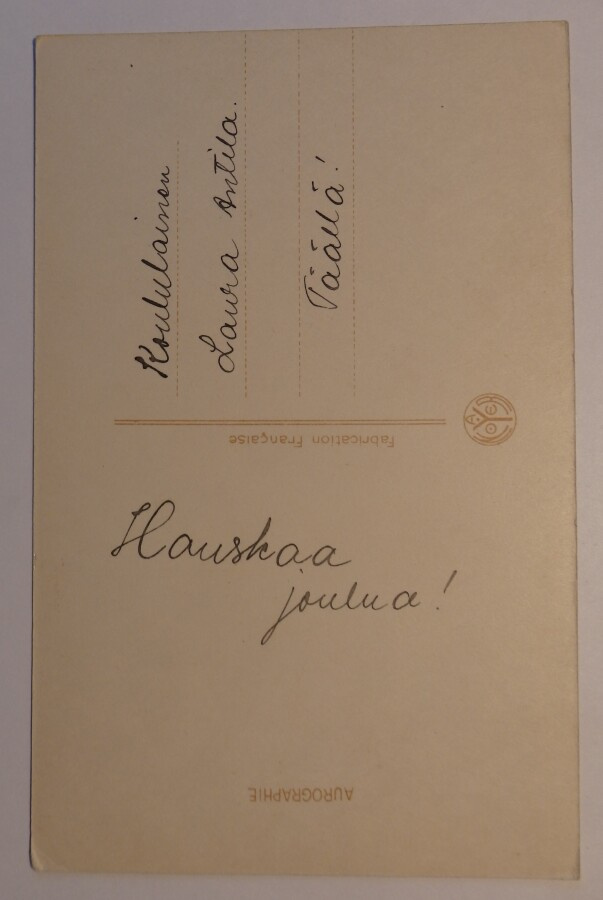 Koululainen
Laura Anttila.
Täällä!
Fabrication Française
Hauskaa
joulua!
AUROGRAPHIE